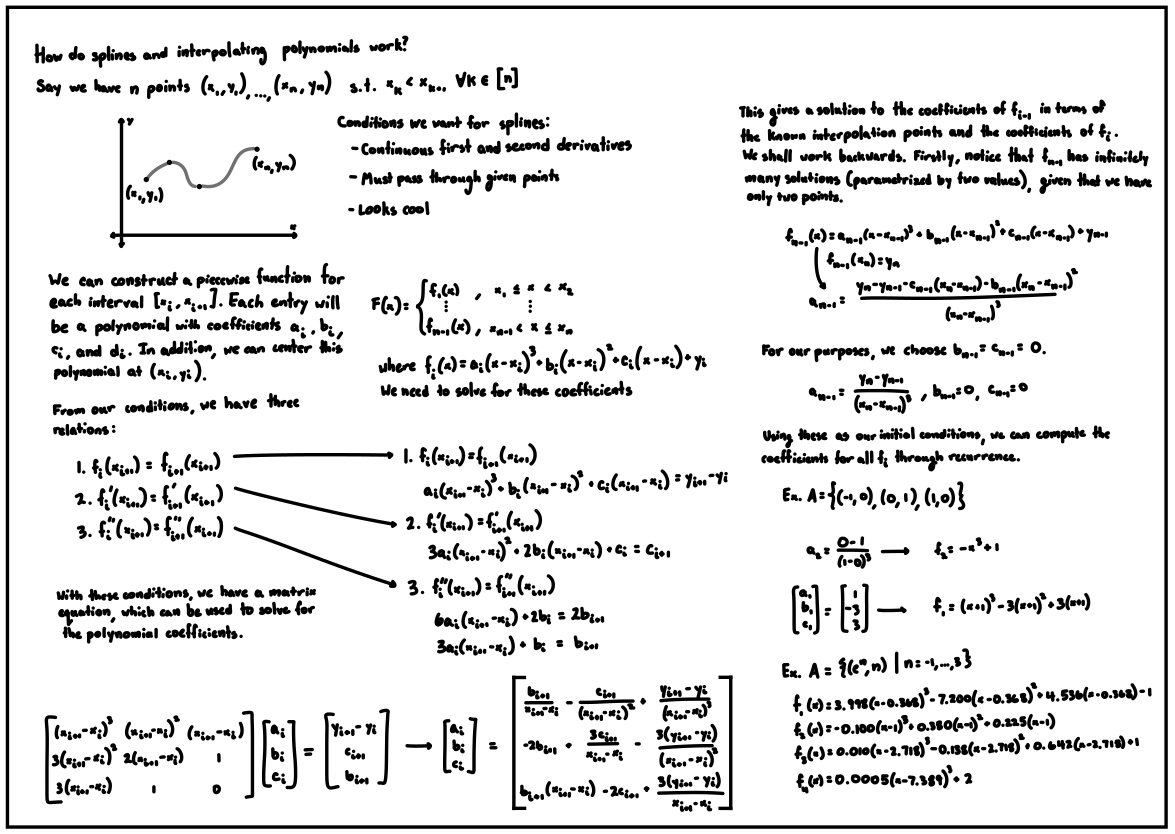 How do splines and interpolating polynomials work?
Say we have n points (x₁,y₁),...,(xₙ,yₙ) s.t. xₖ < xₖ₊₁ ∀k ∈ [n]
y
(x₁,y₁)
(xₙ,yₙ)
x
Conditions we want for splines:
- Continuous first and second derivatives
- Must pass through given points
- Looks cool
We can construct a piecewise function for
each interval [xᵢ, xᵢ₊₁]. Each entry will
be a polynomial with coefficients aᵢ, bᵢ,
cᵢ, and dᵢ. In addition, we can center this
polynomial at (xᵢ,yᵢ).
F(x) = { f₁(x) , x₁ ≤ x < x₂
⋮ ⋮
fₙ₋₁(x), xₙ₋₁ < x ≤ xₙ
where fᵢ(x) = aᵢ(x-xᵢ)³+bᵢ(x-xᵢ)²+cᵢ(x-xᵢ)+yᵢ
We need to solve for these coefficients
From our conditions, we have three
relations:
1. fᵢ(xᵢ₊₁) = fᵢ₊₁(xᵢ₊₁)
2. fᵢ'(xᵢ₊₁) = fᵢ₊₁'(xᵢ₊₁)
3. fᵢ''(xᵢ₊₁) = fᵢ₊₁''(xᵢ₊₁)
1. fᵢ(xᵢ₊₁) = fᵢ₊₁(xᵢ₊₁)
aᵢ(xᵢ₊₁-xᵢ)³+bᵢ(xᵢ₊₁-xᵢ)²+cᵢ(xᵢ₊₁-xᵢ) = yᵢ₊₁-yᵢ
2. fᵢ'(xᵢ₊₁) = fᵢ₊₁'(xᵢ₊₁)
3aᵢ(xᵢ₊₁-xᵢ)²+2bᵢ(xᵢ₊₁-xᵢ)+cᵢ = cᵢ₊₁
3. fᵢ''(xᵢ₊₁) = fᵢ₊₁''(xᵢ₊₁)
6aᵢ(xᵢ₊₁-xᵢ)+2bᵢ = 2bᵢ₊₁
3aᵢ(xᵢ₊₁-xᵢ)+bᵢ = bᵢ₊₁
With these conditions, we have a matrix
equation, which can be used to solve for
the polynomial coefficients.
[(xᵢ₊₁-xᵢ)³ (xᵢ₊₁-xᵢ)² (xᵢ₊₁-xᵢ)] [aᵢ] = [yᵢ₊₁-yᵢ] → [aᵢ] = [bᵢ₊₁/(xᵢ₊₁-xᵢ) - cᵢ₊₁/(xᵢ₊₁-xᵢ)² + (yᵢ₊₁-yᵢ)/(xᵢ₊₁-xᵢ)³]
[3(xᵢ₊₁-xᵢ)² 2(xᵢ₊₁-xᵢ) 1] [bᵢ] [cᵢ₊₁] [bᵢ] [-2bᵢ₊₁ + 3cᵢ₊₁/(xᵢ₊₁-xᵢ) - 3(yᵢ₊₁-yᵢ)/(xᵢ₊₁-xᵢ)²]
[3(xᵢ₊₁-xᵢ) 1 0] [cᵢ] [bᵢ₊₁] [cᵢ] [bᵢ₊₁(xᵢ₊₁-xᵢ) - 2cᵢ₊₁ + 3(yᵢ₊₁-yᵢ)/(xᵢ₊₁-xᵢ)]
This gives a solution to the coefficients of fᵢ₋₁ in terms of
the known interpolation points and the coefficients of fᵢ.
We shall work backwards. Firstly, notice that fₙ₋₁ has infinitely
many solutions (parametrized by two values), given that we have
only two points.
fₙ₋₁(x) = aₙ₋₁(x-xₙ₋₁)³+bₙ₋₁(x-xₙ₋₁)²+cₙ₋₁(x-xₙ₋₁)+yₙ₋₁
fₙ₋₁(xₙ) = yₙ
aₙ₋₁ = (yₙ-yₙ₋₁-cₙ₋₁(xₙ-xₙ₋₁)-bₙ₋₁(xₙ-xₙ₋₁)²)/(xₙ-xₙ₋₁)³
For our purposes, we choose bₙ₋₁ = cₙ₋₁ = 0.
aₙ₋₁ = (yₙ-yₙ₋₁)/(xₙ-xₙ₋₁)³ , bₙ₋₁=0, cₙ₋₁=0
Using these as our initial conditions, we can compute the
coefficients for all fᵢ through recurrence.
Ex. A = {(-1,0), (0,1), (1,0)}
a₂ = (0-1)/(1-0)³ → f₂ = -x³+1
[a₁] = [1] → f₁ = (x+1)³-3(x+1)²+3(x+1)
[b₁] [-3]
[c₁] [3]
Ex. A = {(eⁿ,n) | n = -1,...,3}
f₁(x) = 3.998(x-0.368)³-7.200(x-0.368)²+4.536(x-0.368)-1
f₂(x) = -0.100(x-1)³+0.380(x-1)²+0.225(x-1)
f₃(x) = 0.010(x-2.718)³-0.138(x-2.718)²+0.642(x-2.718)+1
f₄(x) = 0.0005(x-7.389)³+2